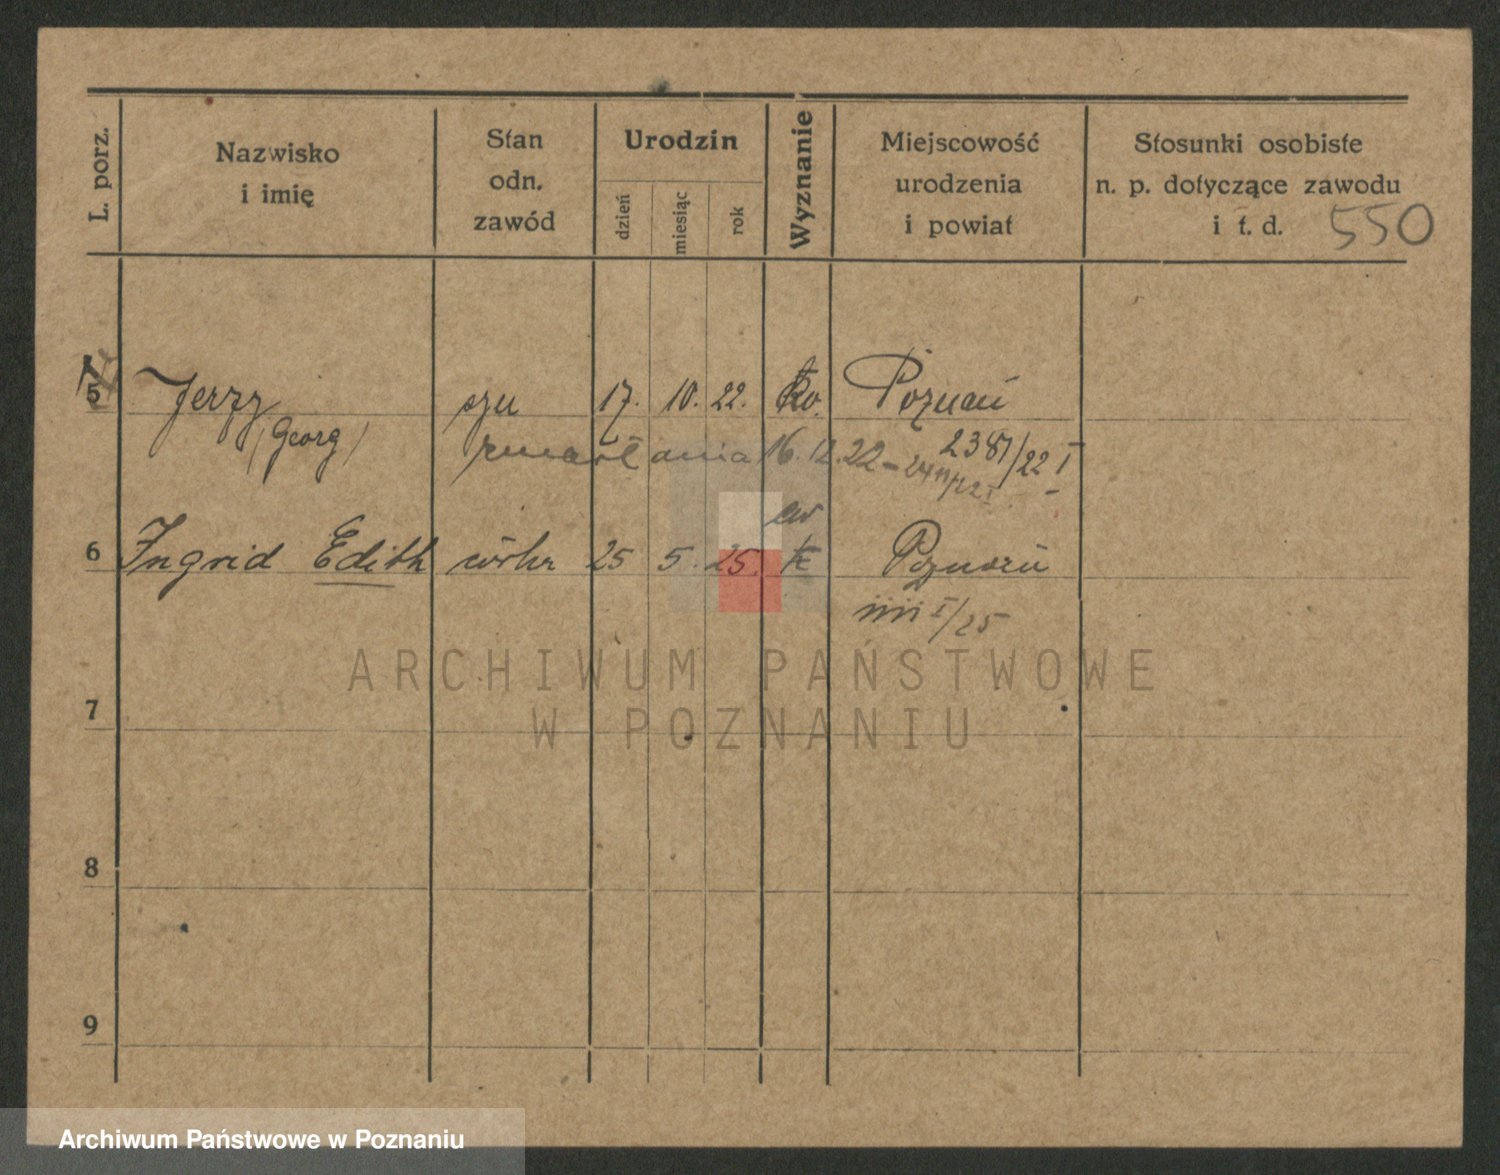 L. porz.
Nazwisko
i imię
Stan
odn.
zawód
Urodzin
dzień
miesiąc
rok
Wyznanie
Miejscowość
urodzenia
i powiat
Stosunki osobiste
n. p. dotyczące zawodu
i t. d.
550
5 Jerzy syn 17. 10. 22. Poznań
(Georg)
zmarł dnia 16.12.22 - 2387/22 I
6 Ingrid Edith córka 25 5. 25. Poznań
I/25
7
8
9
ARCHIWUM PAŃSTWOWE
W POZNANIU
Archiwum Państwowe w Poznaniu